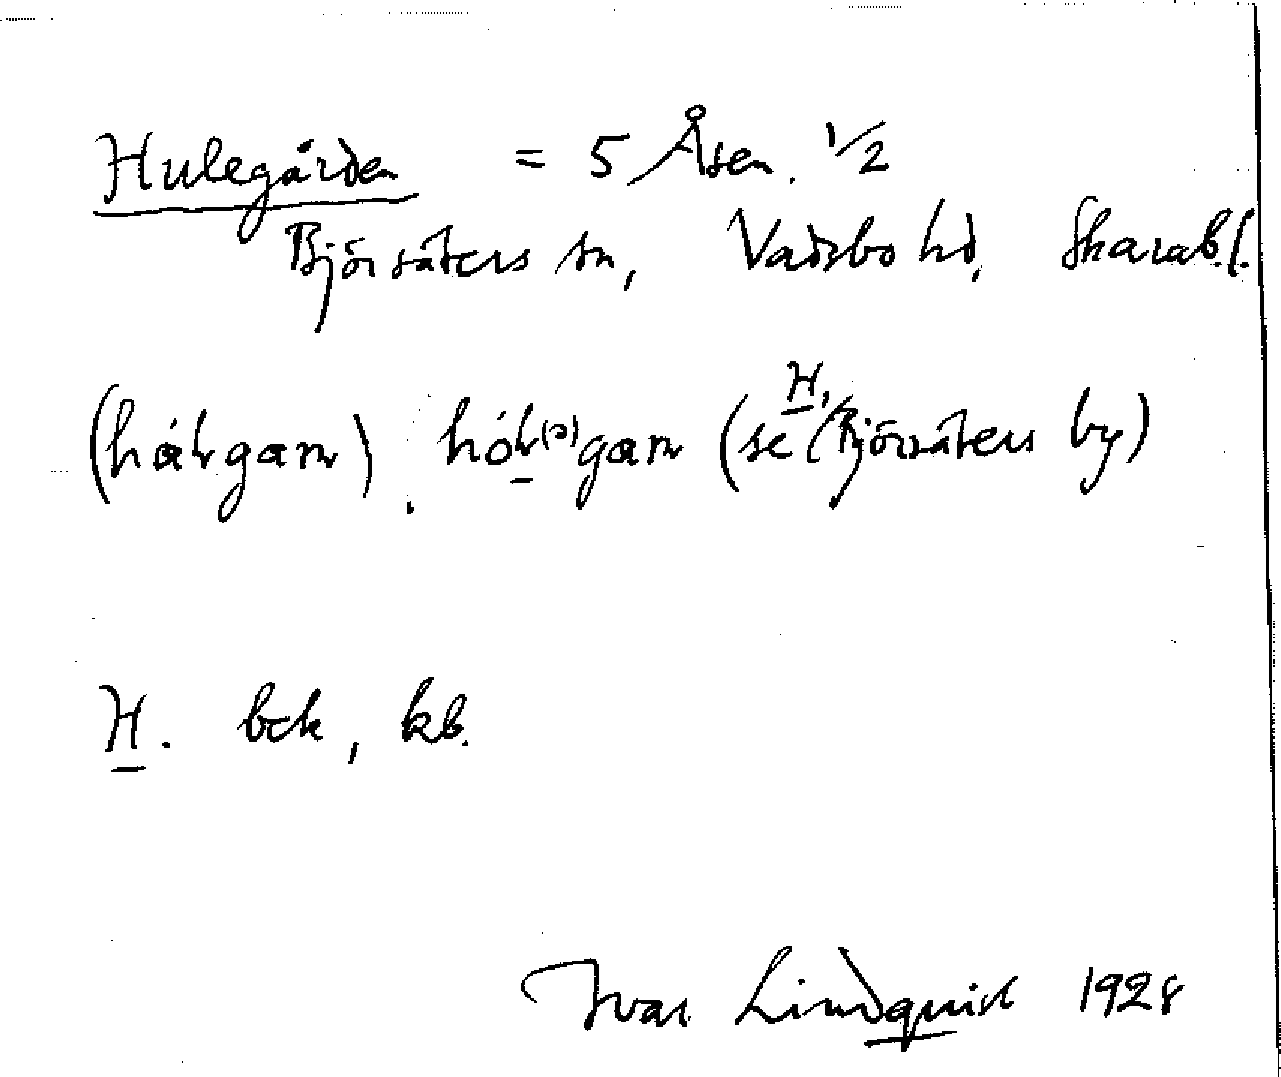 Hulegården = 5 Åsen. 1/2
Björsäters sn, Vadsbo hd, Skarab.l.
(hálgan). hól(ə)gan (se H, Björsäters by)
H. bek, kb.
Ivar Lindquist 1928